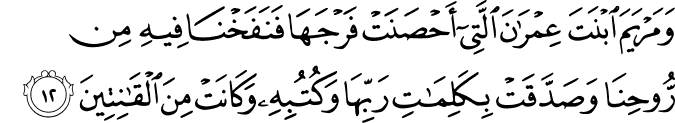 وَمَرْيَمَ ٱبْنَتَ عِمْرَٰنَ ٱلَّتِىٓ أَحْصَنَتْ فَرْجَهَا فَنَفَخْنَا فِيهِ مِن
رُّوحِنَا وَصَدَّقَتْ بِكَلِمَٰتِ رَبِّهَا وَكُتُبِهِۦ وَكَانَتْ مِنَ ٱلْقَٰنِتِينَ ١٢